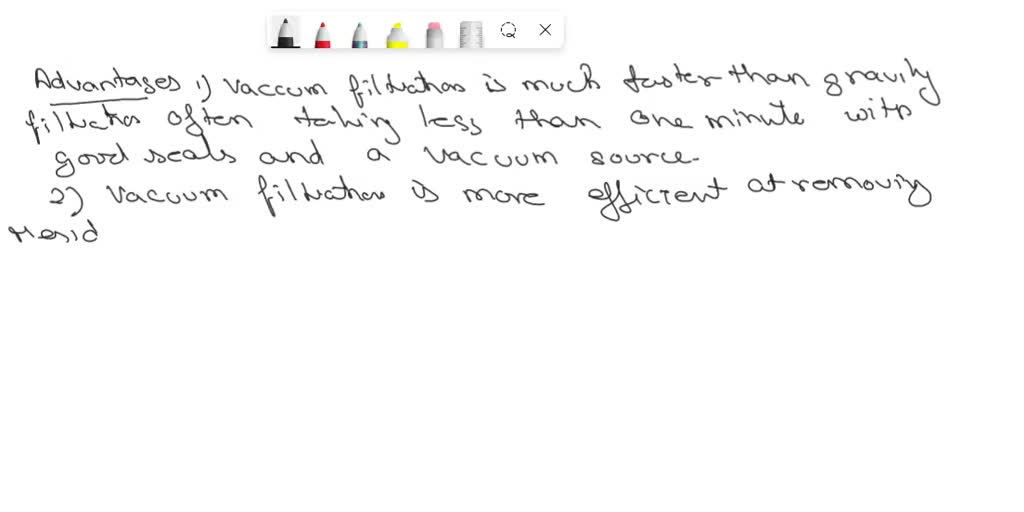 Advantages 1) Vaccum filtration is much faster than gravity
filtration often taking less than one minute with
good seals and a vacuum source.
2) Vacuum filtration is more efficient at removing
resid